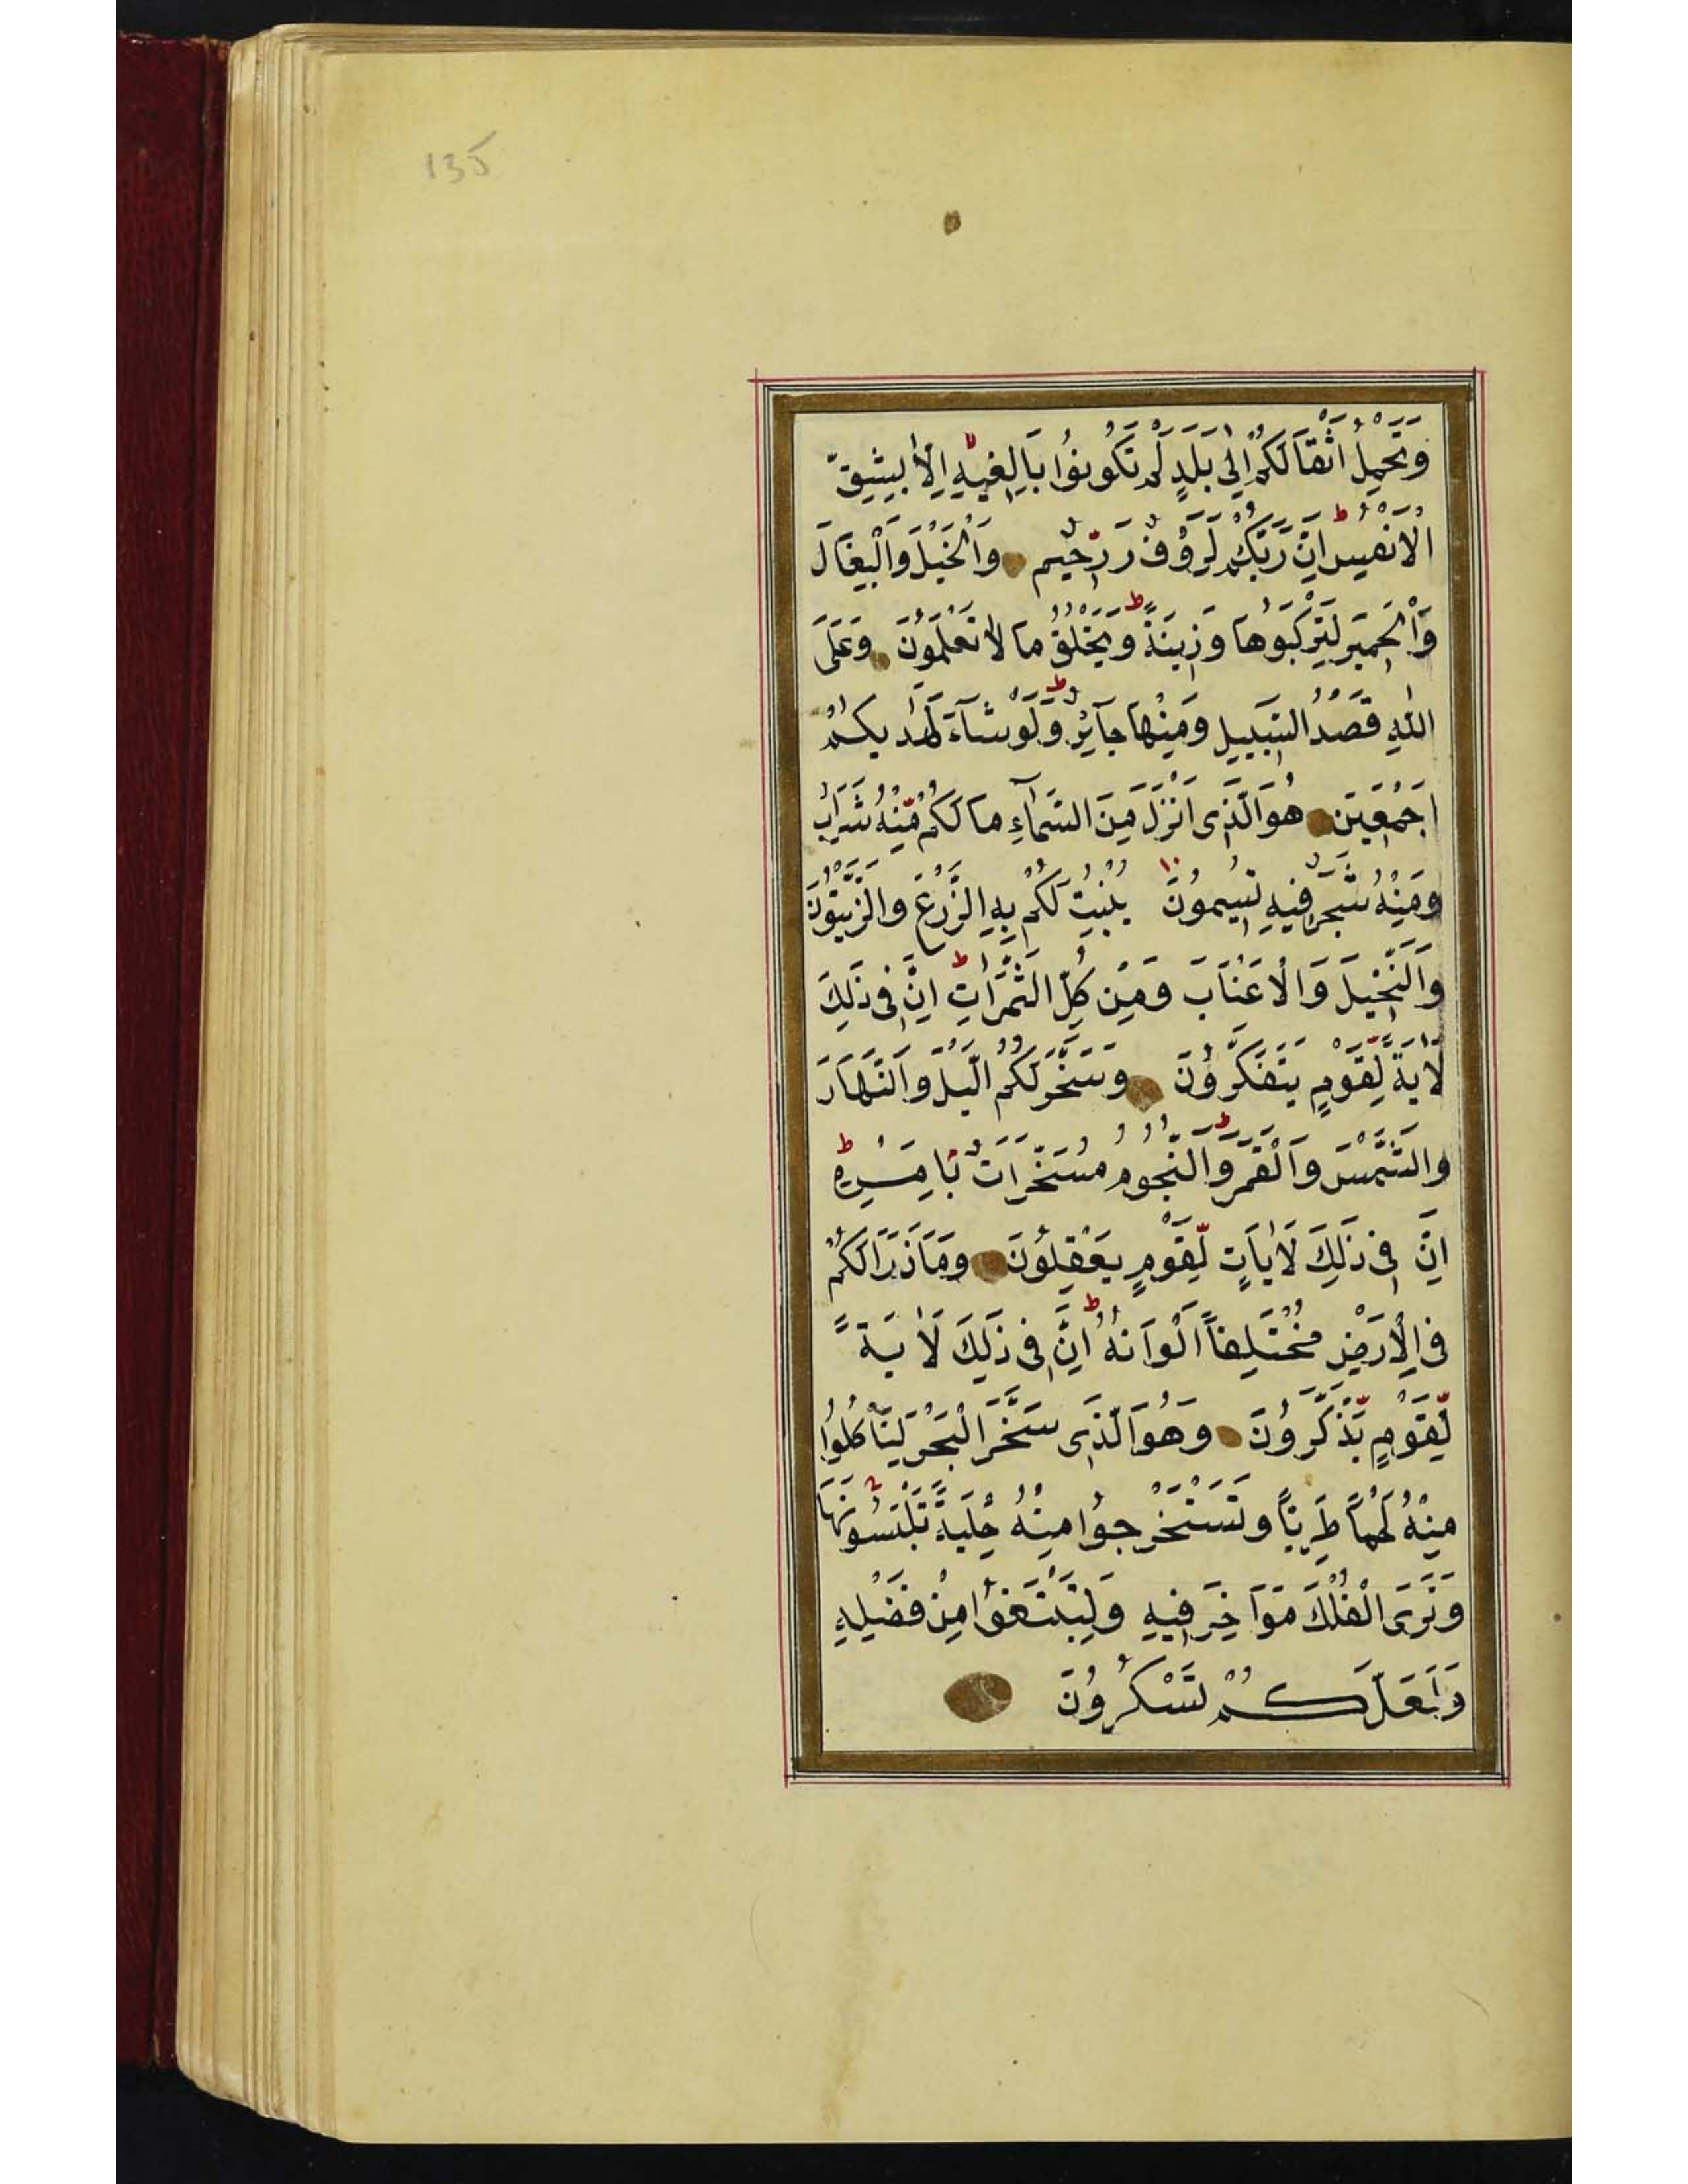 135
وَتَحْمِلُ اَثْقَالَكُمْ اِلٰى بَلَدٍ لَمْ تَكُونُوا بَالِغيِهِ اِلَّا بِشِقِّ
الْاَنْفُسِ اِنَّ رَبَّكُمْ لَرَؤُفٌ رَّحِيْمٌ وَالْخَيْلَ وَالْبِغَالَ
وَالْحَمِيْرَ لِتَرْكَبُوهَا وَزِينَةً وَيَخْلُقُ مَا لَا تَعْلَمُونَ وَعَلَى
اللهِ قَصْدُ السَّبِيلِ وَمِنْهَا جَآئِرٌ وَلَوْ شَآءَ لَهَدٰيكُمْ
اَجْمَعِيَن هُوَ الَّذِى اَنْزَلَ مِنَ السَّمَآءِ مَا لَكُمْ مِّنْهُ شَرَابٌ
وَمِنْهُ شَجَرٌ فِيهِ تُسِيمُونَ ١٠ يُنْبِتُ لَكُمْ بِهِ الزَّرْعَ وَالزَّيْتُونَ
وَالنَّخْيِلَ وَالْاَعْنَابَ وَمِنْ كُلِّ الثَّمَرَاتِ اِنَّ فِى ذٰلِكَ
لَاٰيَةً لِّقَوْمٍ يَتَفَكَّرُونَ وَسَخَّرَ لَكُمُ الَّيْلَ وَالنَّهَارَ
وَالشَّمْسَ وَالْقَمَرَ وَالنُّجُومُ مُسَخَّرَاتٌ بِاَمْرِهِ
اِنَّ فِى ذٰلِكَ لَاٰيَاتٍ لِّقَوْمٍ يَعْقِلُونَ وَمَا ذَرَاَ لَكُمْ
فِى الْاَرْضِ مُخْتَلِفاً اَلْوَانُهُ اِنَّ فِى ذٰلِكَ لَاٰيَةً
لِّقَوْمٍ يَّذَّكَّرُونَ وَهُوَ الَّذِى سَخَّرَ الْبَحْرَ لِتَاْكُلُوا
مِنْهُ لَحْماً طَرِيّاً وَتَسْتَخْرِجُوا مِنْهُ حِلْيَةً تَلْبَسُونَهَا
وَتَرَى الْفُلْكَ مَوَاخِرَ فِيهِ وَلِتَبْتَغُوا مِنْ فَضْلِهِ
وَلَعَلَّكُمْ تَشْكُرُونَ